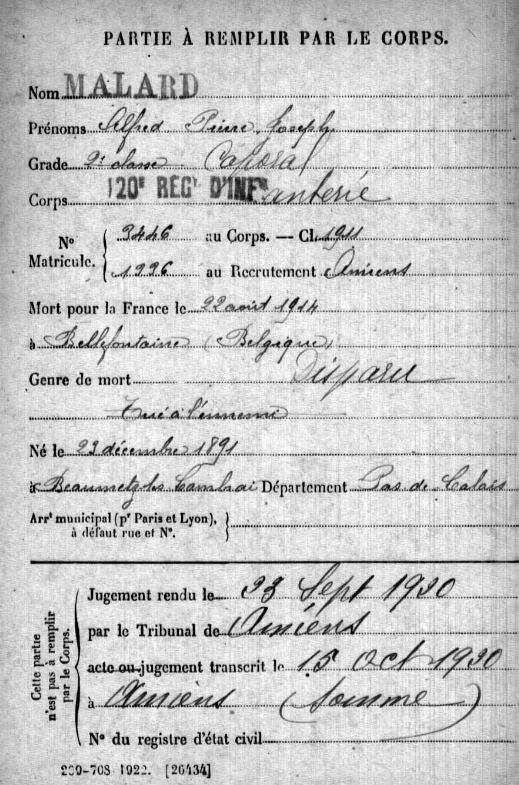 PARTIE À REMPLIR PAR LE CORPS.
Nom MALARD
Prénoms Alfred Pierre Joseph
Grade 2e classe Caporal
Corps 120e REGt D'INFanterie
No Matricule. { 3446 au Corps. — Cl. 1911
1996 au Recrutement Amiens
Mort pour la France le 22 août 1914
à Bellefontaine (Belgique)
Genre de mort Disparu
Tué à l'ennemi
Né le 23 décembre 1891
à Beaumetz les Cambrai Département Pas de Calais
Arrt municipal (pr Paris et Lyon), }
à défaut rue et No.
Cette partie n'est pas à remplir par le Corps.
Jugement rendu le 23 Sept 1920
par le Tribunal de Amiens
acte ou jugement transcrit le 15 Oct 1920
à Amiens (Somme)
No du registre d'état civil
299-708 1922. [26434]